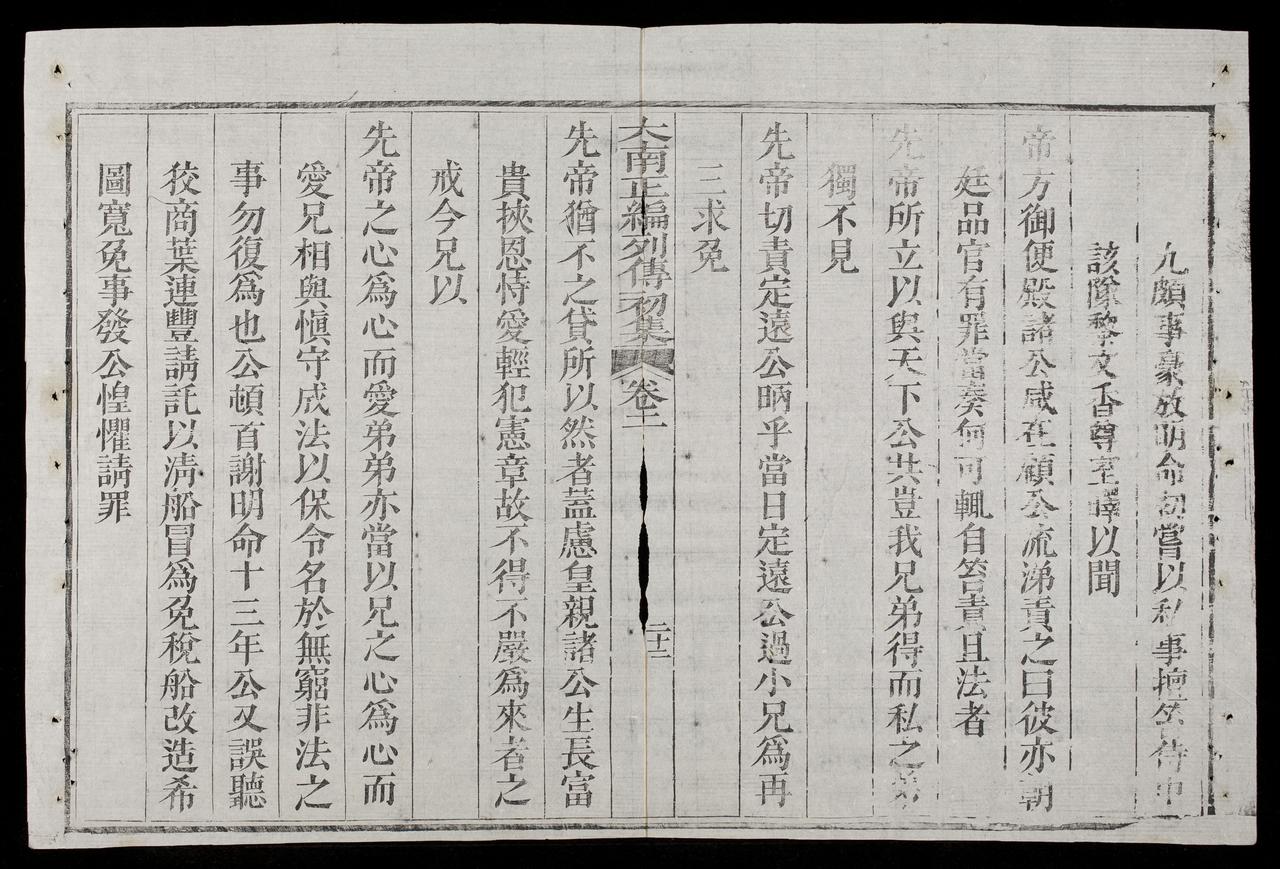 九頗事豪放明命初嘗以私事擅笞侍中
該隊黎文香尊室疄以聞
帝方御便殿諸公咸在顧公流涕責之曰彼亦朝
廷品官有罪當奏何可輒自笞責且法者
先帝所立以與天下公共豈我兄弟得而私之弟
獨不見
先帝切責定遠公昞乎當日定遠公過小兄為再
三求免
大南正編列傳初集 卷二 二十二
先帝猶不之貸所以然者蓋慮皇親諸公生長富
貴挾恩恃愛輕犯憲章故不得不嚴為來者之
戒今兄以
先帝之心為心而愛弟弟亦當以兄之心為心而
愛兄相與愼守成法以保令名於無窮非法之
事勿復為也公頓首謝明命十三年公又誤聽
狡商葉連豐請託以淸船冒為免稅船改造希
圖寬免事發公惶懼請罪